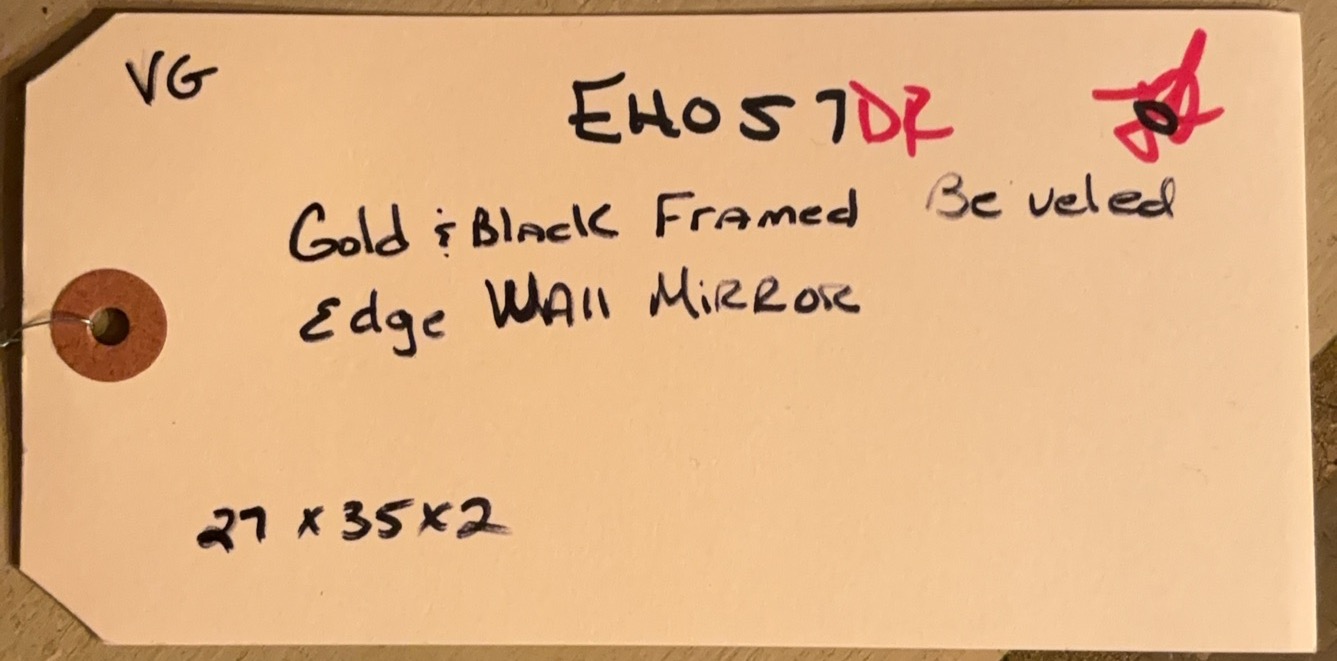 VG
EH057DR
Gold & Black Framed Beveled
Edge Wall Mirror
27 x 35 x 2